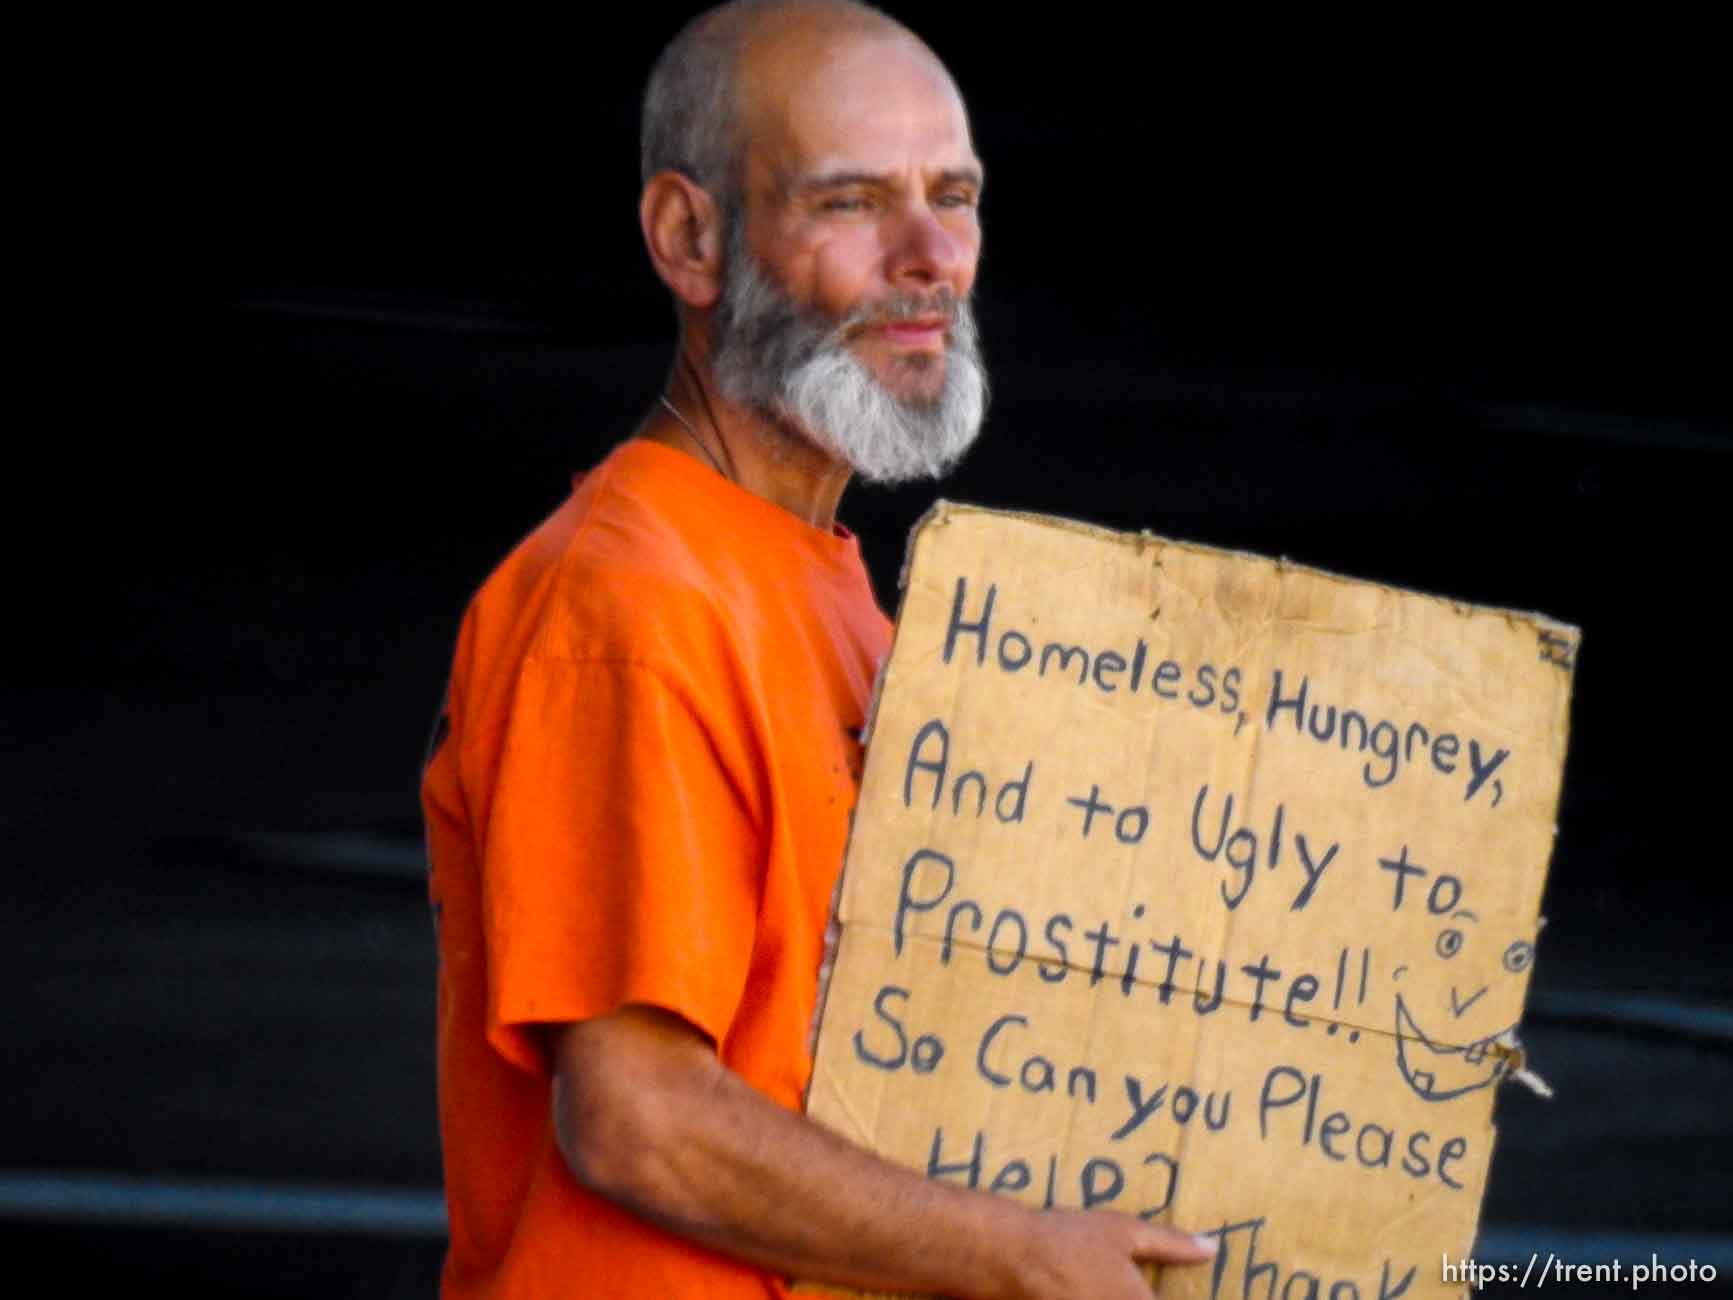 Homeless, Hungrey,
And to Ugly to
Prostitute!!
So Can you Please
Help?
Thank
https://trent.photo